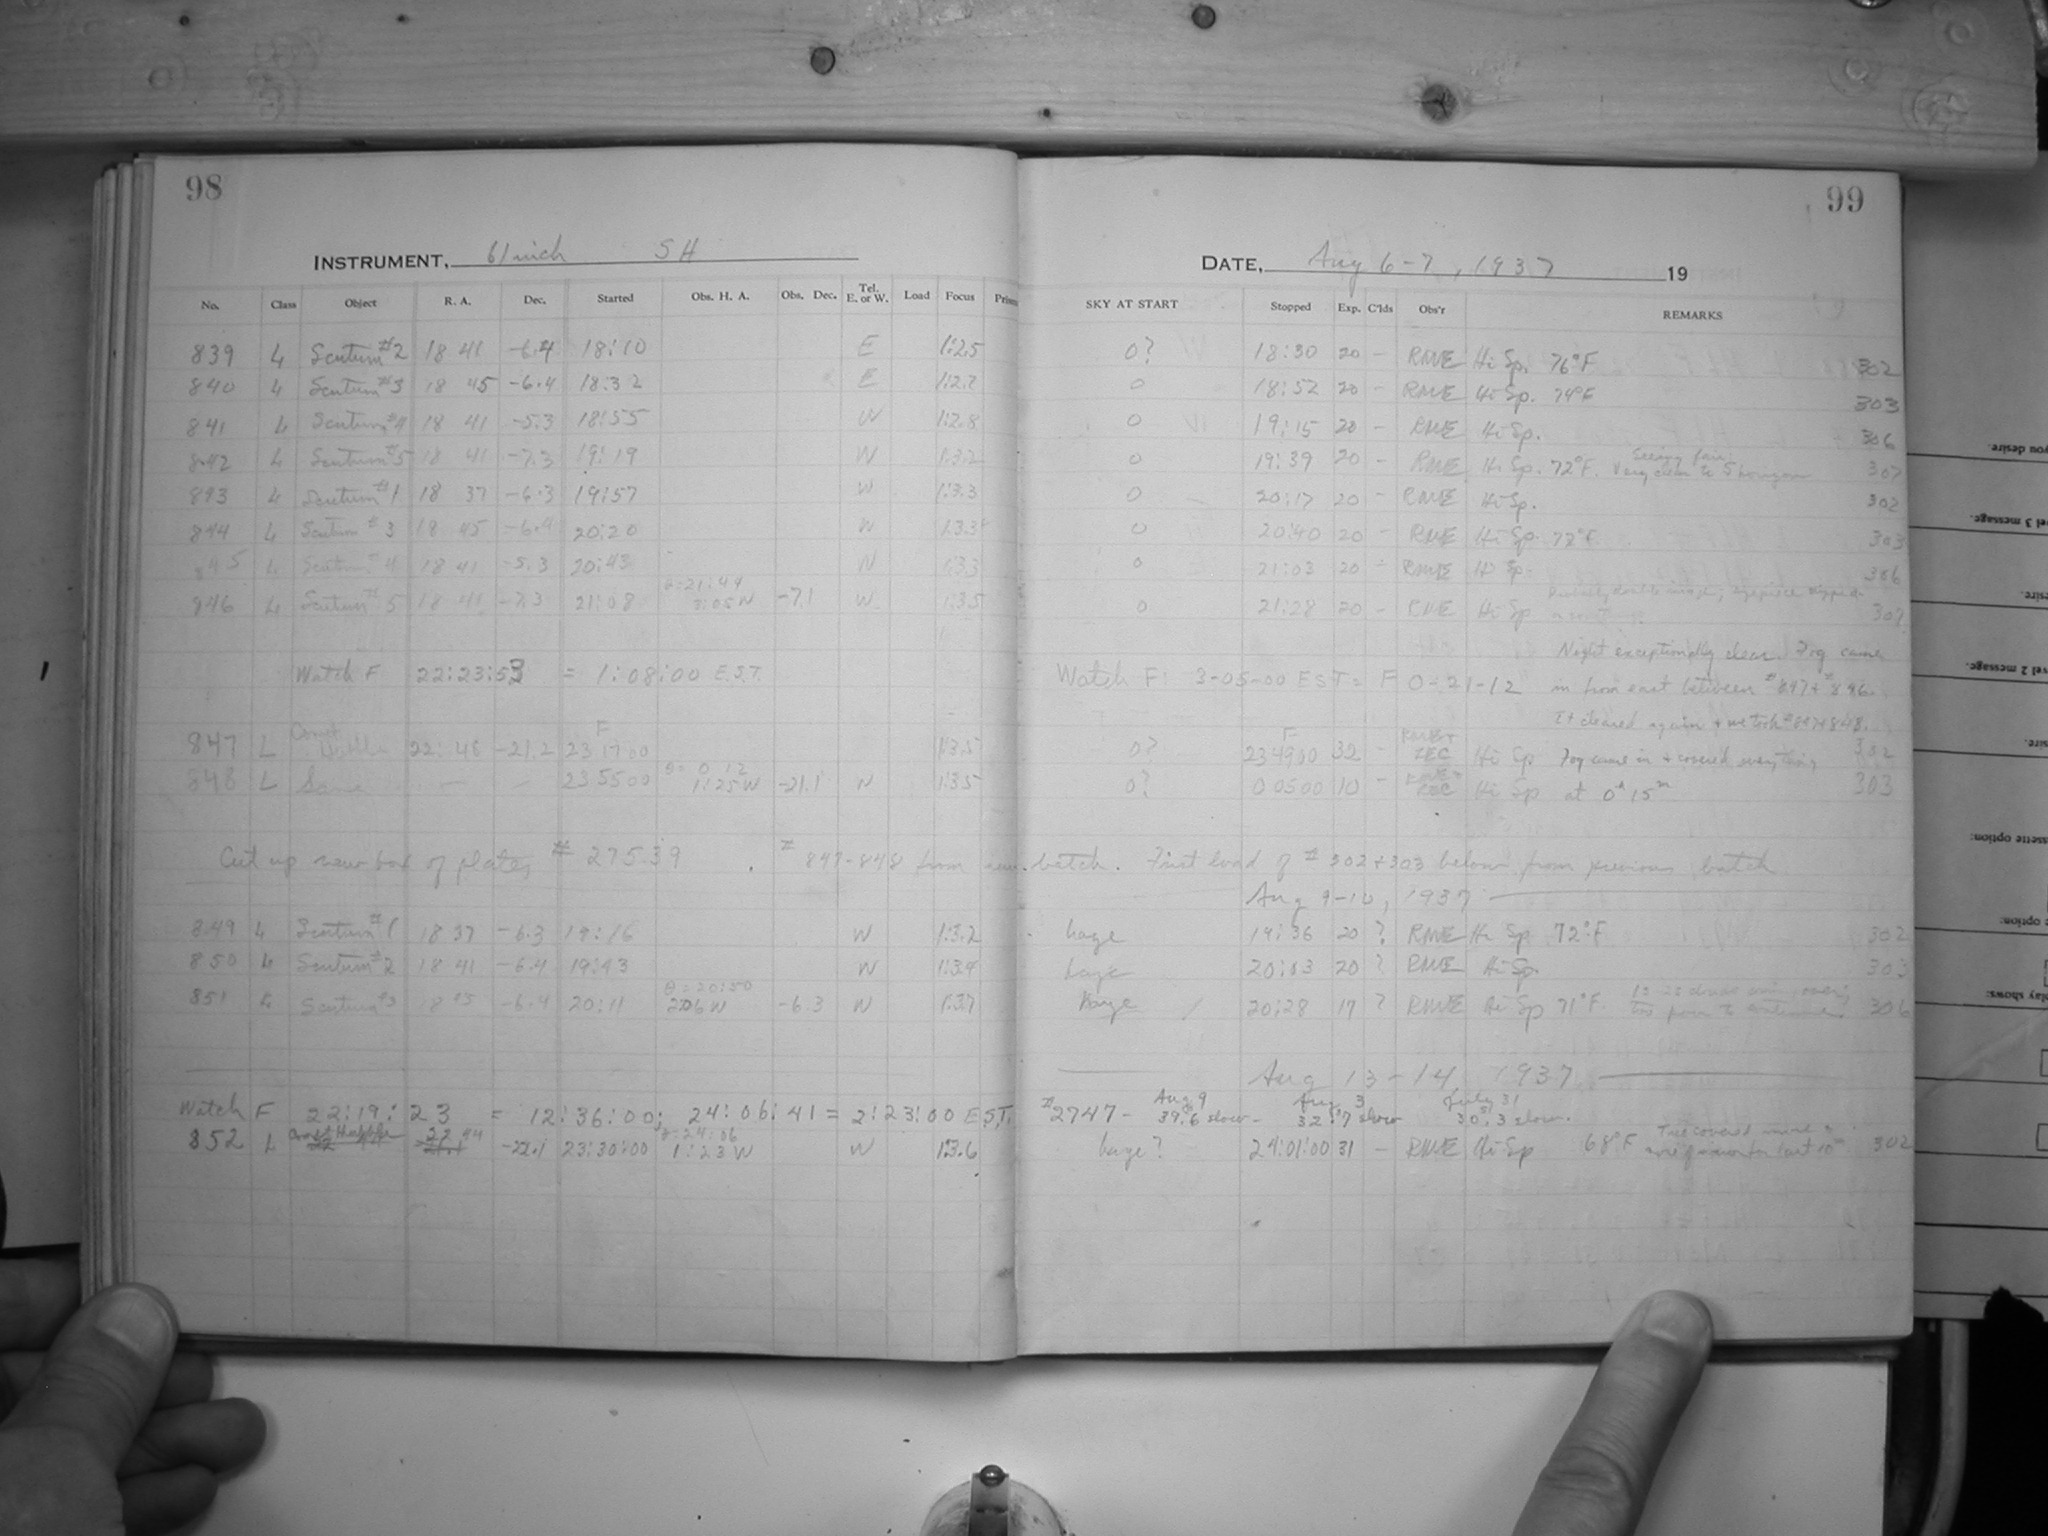 98
99
INSTRUMENT, 61 inch SH
DATE, Aug 6-7, 1937 19
No. Class Object R. A. Dec. Started Obs. H. A. Obs. Dec. Tel. E. or W. Load Focus SKY AT START Stopped Exp. C'lds Obs'r REMARKS
839 L Scutum #2 18 41 -6.4 18:10 E 1:2.5 0? 18:30 20 - RME Hi Sp. 76°F 302
840 L Scutum #3 18 45 -6.4 18:32 E 1:2.7 0 18:52 20 - RME Hi Sp. 74°F 303
841 L Scutum #4 18 41 -5.3 18:55 W 1:2.8 0 19:15 20 - RME Hi Sp. 306
842 L Scutum #5 18 41 -7.3 19:19 W 1:3.2 0 19:39 20 - RME Hi Sp. 72°F. Seeing fair Very clear to S horizon 307
843 L Scutum #1 18 37 -6.3 19:57 W 1:3.3 0 20:17 20 - RME Hi Sp. 302
844 L Scutum #3 18 45 -6.4 20:20 W 1:3.3 0 20:40 20 - RME Hi Sp. 72°F. 303
845 L Scutum #4 18 41 -5.3 20:43 W 1:3.3 0 21:03 20 - RME Hi Sp. 306
846 L Scutum #5 18 41 -7.3 21:08 θ=21:44 3:05 W -7.1 W 1:3.5 0 21:28 20 - RME Hi Sp 307
Night exceptionally clear. Fog came
Watch F 22:23:53 = 1:08:00 E.S.T. Watch F: 3-05-00 EST = F 0-21-12 in from east between #847 + #846.
It cleared again + we took #847+848.
847 L Comet 22: 46 -21.2 F 23 17 00 1:3.5 0? F 23 49 00 32 - Hi Sp Fog came in + covered everything 302
848 L Same — — 23 55 00 θ= 0 12 1:25 W -21.1 W 1:3.5 0? 0 05 00 10 - Hi Sp at 0h 15m 303
Cut up new box of plates # 27539. #847-848 from new batch. First load of #302+303 below from previous batch
Aug 9-10, 1937
849 L Scutum #1 18 37 -6.3 19:16 W 1:3.2 haze 19:36 20 ? RME Hi Sp 72°F 302
850 L Scutum #2 18 41 -6.4 19:43 W 1:3.4 haze 20:03 20 ? RME Hi Sp. 303
851 L Scutum #3 18 45 -6.4 20:11 θ=20:50 2:06 W -6.3 W 1:3.7 haze 20:28 17 ? RME Hi Sp 71°F. too poor to continue. 306
Aug 13-14, 1937
Watch F 22:19:23 = 12:36:00; 24:06:41 = 2:23:00 E.S.T. #2747 - Aug 9 39.6 slow - Aug 3 32.7 slow July 31 30.3 slow.
852 L Comet Hubble 22 44 -22.1 23:30:00 θ=24:06 1:23 W W 1:3.6 haze? 24:01:00 31 - RME Hi Sp 68°F Tree covered more + more of mirror for last 10m. 302